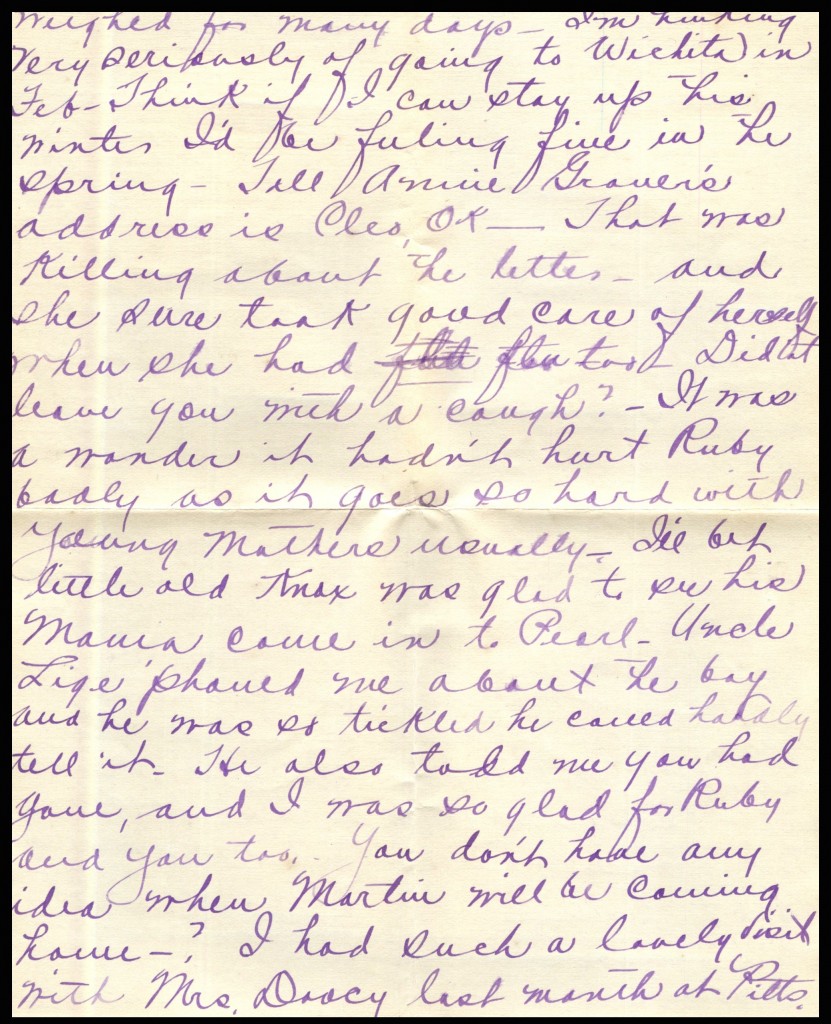 weighed for many days - I'm thinking
very seriously of going to Wichita in
Feb - Think if I can stay up this
winter I'd be feeling fine in the
spring - Tell Annie Graver's
address is Cleo, OK — That was
Killing about the letter - and
she sure took good care of herself
when she had flu too - Did it
leave you with a cough? - It was
a wonder it hadn't hurt Ruby
badly as it goes so hard with
young Mothers usually - I'll bet
little old Knox was glad to see his
Mama come in to Pearl - Uncle
Lige 'phoned me about the boy
and he was so tickled he could hardly
tell it - He also told me you had
gone, and I was so glad for Ruby
and you too. You don't have any
idea when Martin will be coming
home - ? I had such a lovely visit
with Mrs. last month at Pitts.